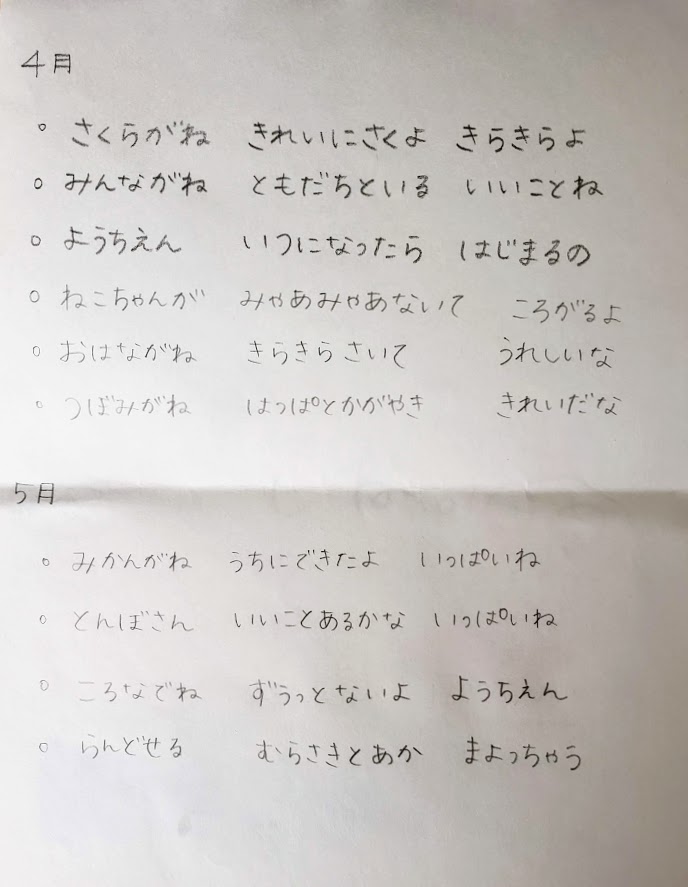 4月
○ さくらがね きれいにさくよ きらきらよ
○ みんながね ともだちといる いいことね
○ ようちえん いつになったら はじまるの
○ ねこちゃんが みゃあみゃあないて ころがるよ
○ おはながね きらきらさいて うれしいな
○ つぼみがね はっぱとかがやき きれいだな
5月
○ みかんがね うちにできたよ いっぱいね
○ とんぼさん いいことあるかな いっぱいね
○ ころなでね ずうっとないよ ようちえん
○ らんどせる むらさきとあか まよっちゃう